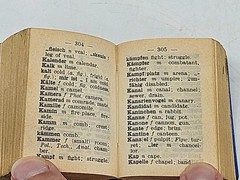 304
„fleisch n veal;
leg of veal.
Kalender m calendar.
Kalk m lime.
kalt cold
Kamel n camel.
Kamera f camera.
Kamerad m comrade.
Kamille f camomile.
Kamin m chimney, fireside.
Kamm m comb; crest; ridge.
kämmen comb.
Kammer f (small) room;
Kampf m fight; struggle.
305
kämpfen fight; struggle.
Kämpfer m combatant, fighter.
Kampf|platz m arena;
richter m umpire;
fähig disabled.
Kanal m canal;
channel.
Kanarienvogel m canary
Kandidat m candidate.
Kaninchen n rabbit.
Kanne f can, jug, pot.
Kanone f cannon, gun.
Kante f edge; brim.
Kantine f canteen.
Kanzel f pulpit;
Kap n cape.
Kapelle f chapel; band